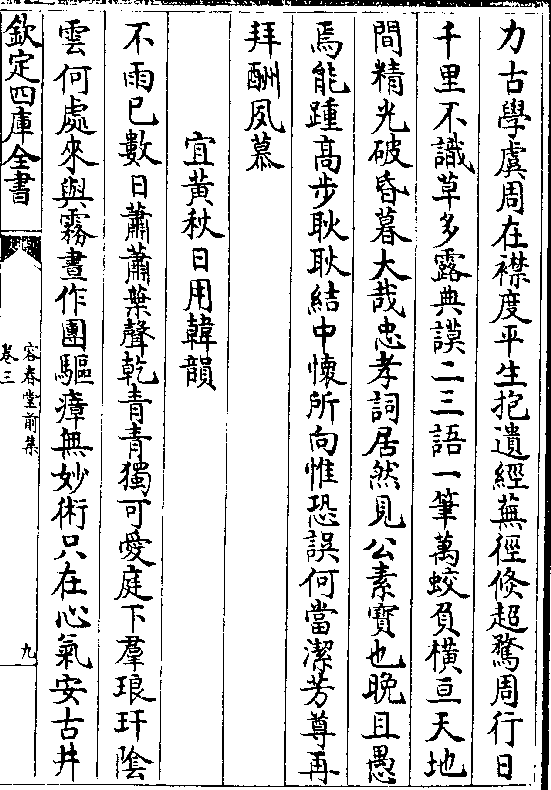 力古學虞周在襟度平生抱遺經蕪徑倐超騖周行日
千里不識草多露典謨二三語一筆萬蛟負横亘天地
間精光破昏暮大哉忠孝詞居然見公素寳也晚且愚
焉能踵高步耿耿結中懷所向惟恐誤何當潔芳尊再
拜酬夙慕
宜黄秋日用韓韻
不雨已數日蕭蕭葉聲乾青青獨可愛庭下羣琅玕陰
雲何處來與霧晝作團驅瘴無妙術只在心氣安古井
欽定四庫全書
容春堂前集
卷三
九